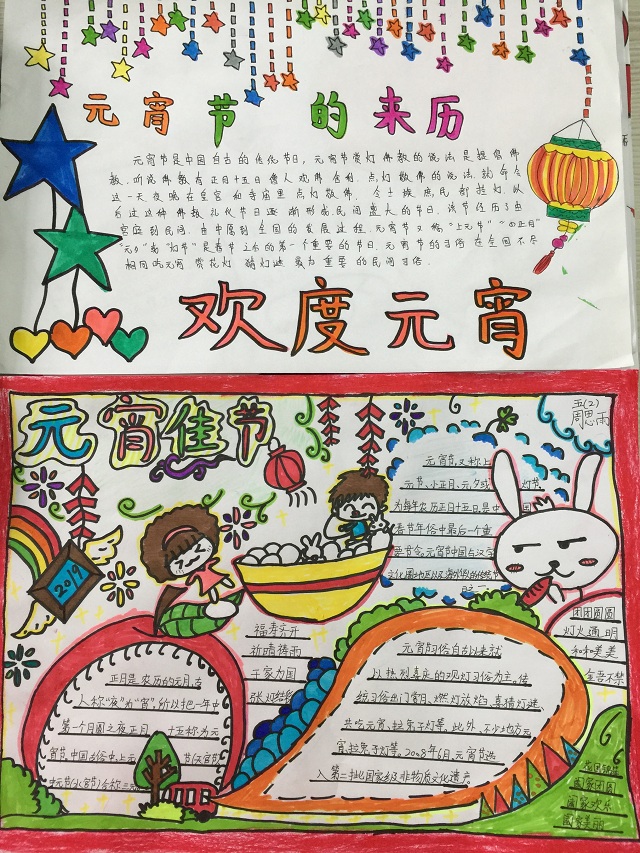 元宵节的来历
元宵节是中国自古的传统节日,元宵节赏灯佛教的说法是提倡佛
教,听说佛教有正月十五日僧人观佛舍利,点灯敬佛的说法,就命令
这一天夜晚在皇宫和寺庙里点灯敬佛,令士族庶民都挂灯,以
后这这种佛教礼仪节日逐渐形成民间盛大的节日.该节经历了由
宫庭到民间,由中原到全国的发展过程.元宵节又称"上元节"
"灯节"是春节之后的第一个重要的节日.元宵节的习俗在全国不尽
相同吃元宵 赏花灯 猜灯谜 最为重要的民间习俗.
欢度元宵
元宵佳节
五(2)
周思雨
2019
元宵节,又称上
元节、小正月、元夕或 灯节,
为每年农历正月十五日是中国
春节年俗中最后一个重
要节令.元宵节中国与汉字
文化圈地区以及
日之一
福寿齐开
祈晴祷雨
千家万国
团团圆圆
灯火通明
和和美美
金吾不禁
正月是农历的元月,古
人称"夜"为"宵",所以把一年中
第一个月圆之夜正月十五称为元
宵节.中国
元宵的习俗自古以来就
以热烈喜庆的观灯习俗为主.传
统习俗出门赏月、燃灯放焰、喜猜灯谜、
共吃元宵、拉兔子灯等.此外,不少地方元
宵 2008年6月,元宵节选
入第二批国家级非物质文化遗产
阖家团圆
阖家欢乐
国家美丽